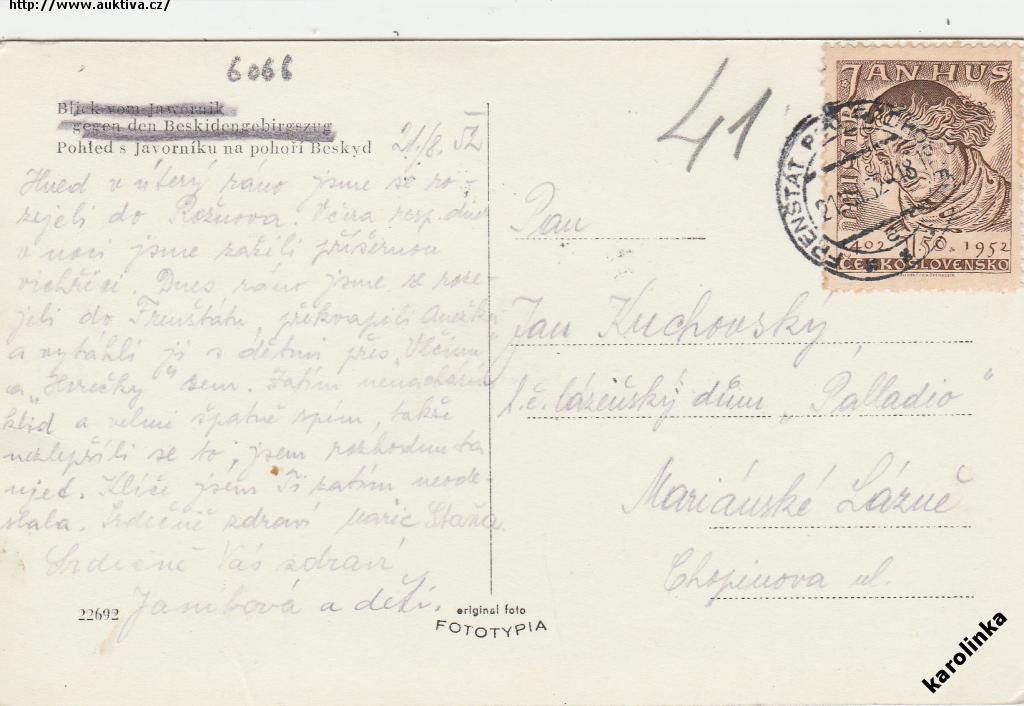 http://www.auktiva.cz/
6066
Blick vom Jawornik
gegen den Beskidengebirgszug
Pohled s Javorníku na pohoří Beskyd
21/8. 52
Hned v úterý ráno jsme se ro-
zejeli do Rožnova. Včera resp. dnes
v noci jsme zažili příšernou
vichřici. Dnes ráno jsme se roze-
jeli do Frenštátu, překvapili Anežku
a vytáhli ji s dětmi přes „Vlčinu"
a „Horečky" sem. Zatím nenacházím
klid a velmi špatně spím, takže
nezlepší-li se to, jsem rozhodnuta
ujet. Klíče jsem Ti zatím neode-
slala. Srdečně zdraví Marie
Srdečně Vás zdraví
a děti.
22692
original foto
FOTOTYPIA
41
JAN HUS
1402 1.50 1952
ČESKOSLOVENSKO
FRENŠTÁT POD RADHOŠTĚM
Pan
Jan Kuchovský,
t. č. lázeňský dům „Palladio"
Mariánské Lázně
Chopinova ul.
karolinka